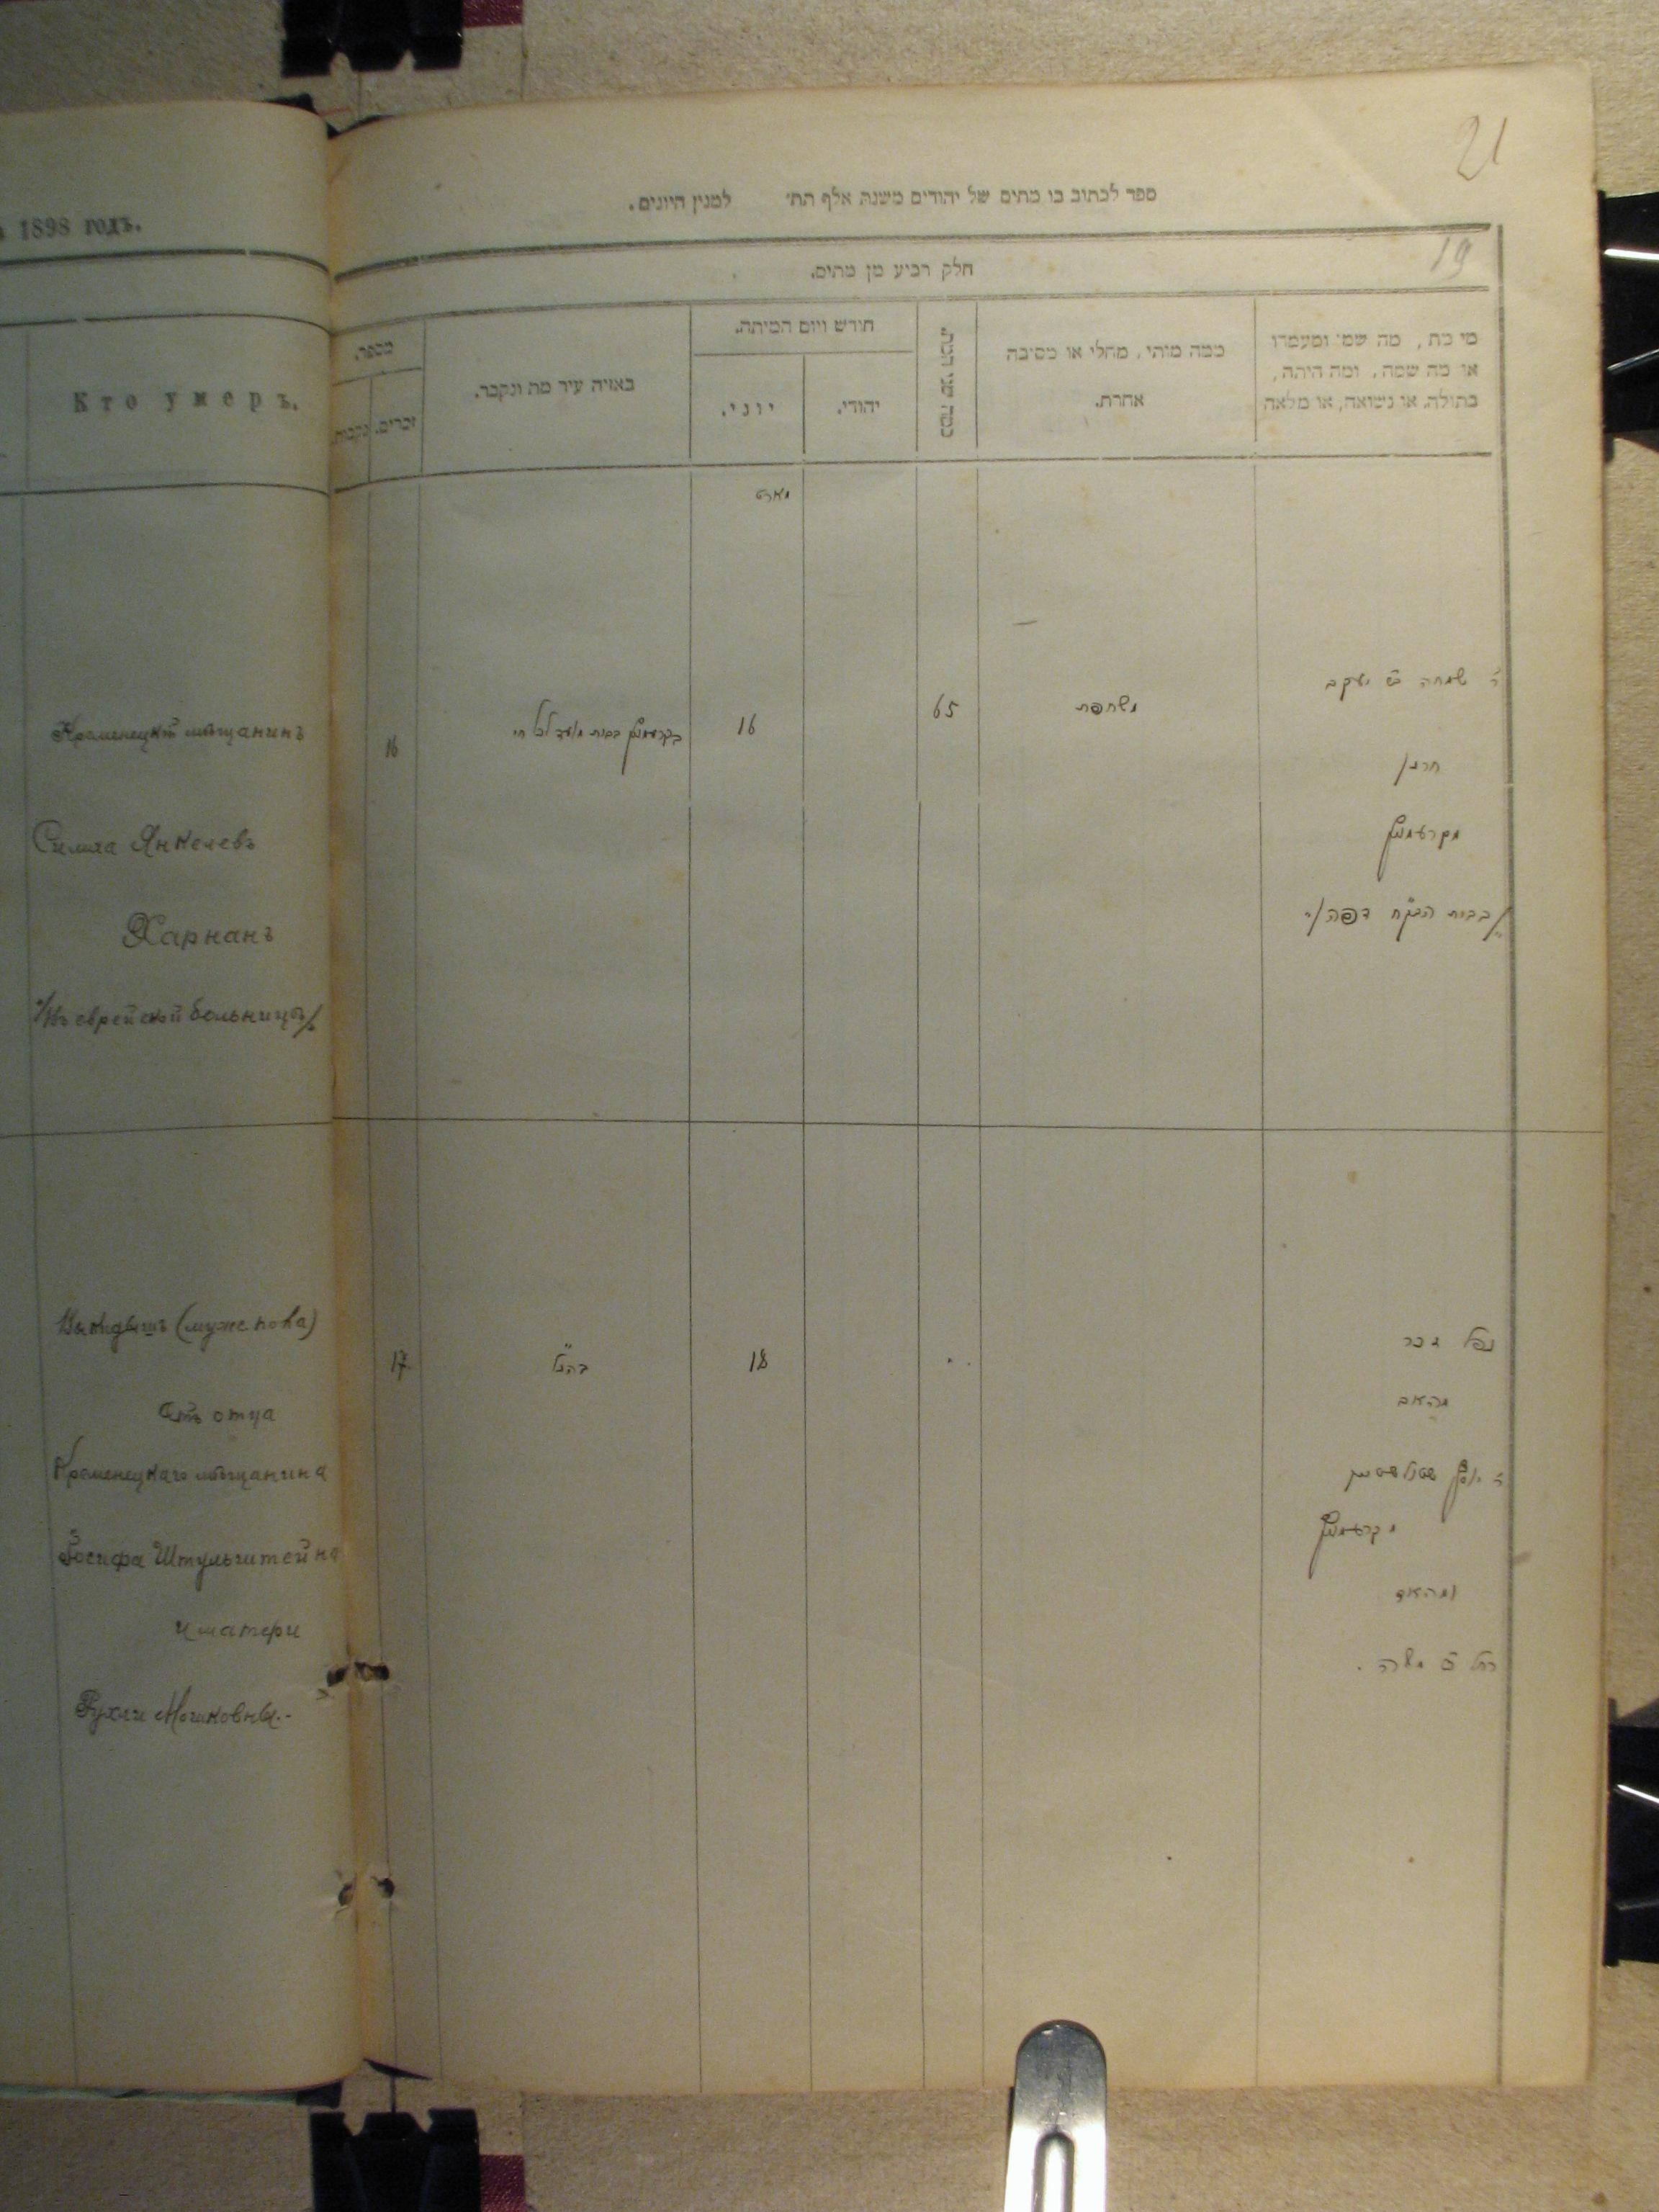 1898 годъ.
Кто умеръ.
Кременецкій мѣщанинъ
Симха Янкелевъ
Харнанъ
/въ еврейской больницѣ/
Выкидышъ (муже. пола)
Отъ отца
Кременецкаго мѣщанина
Іосифа Штульштейна
и матери
Рухли Мошковны.-
21
19
ספר לכתוב בו מתים של יהודים משנת אלף תת׳ למנין היונים.
חלק רביעי מן מתים.
מי מת, מה שמו ומעמדו
או מה שמה, ומה היתה,
בתולה, או נשואה, או מלאה
ממה מותו, מחלי או מסיבה
אחרת.
כמה שני המת
חודש ויום המיתה.
יהודי.
יוני.
באיזה עיר מת ונקבר.
מספר.
זכרים.
נקבות.
מארט
ר׳ שמחה ב״ר יעקב
חרנן
מקרעמניץ
/בבית הבק״ח דפה/
משחפת
65
16
בקרעמניץ בבית מועד לכל חי
16
נפל זכר
מהאב
ר׳ יוסף שטולשטיין
מקרעמניץ
ומהאם
רחל ב׳ משה.
18
בהנ״ל
17